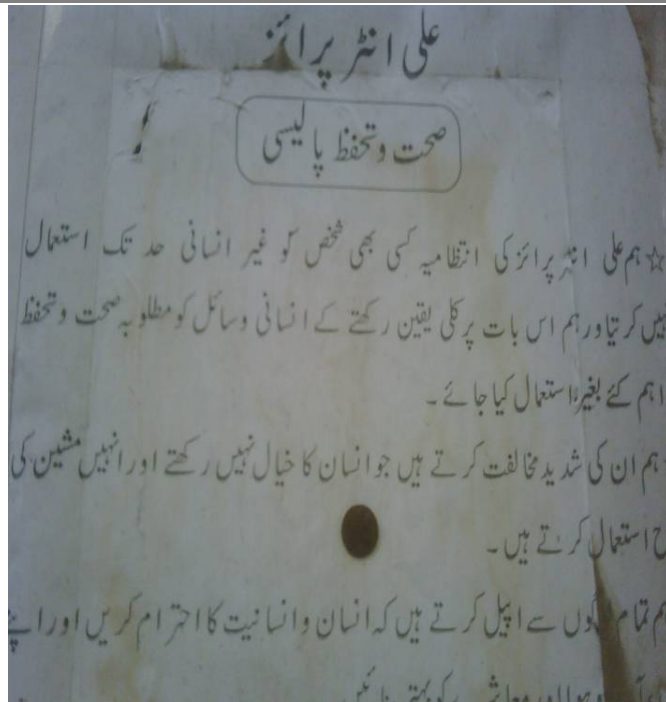 علی انٹر پرائز
صحت و تحفظ پالیسی
☆ ہم علی انٹر پرائز کی انتظامیہ کسی بھی شخص کو غیر انسانی حد تک استعمال
ہیں کرتیا ور ہم اس بات پر کلی یقین رکھتے کے انسانی وسائل کو مطلوبہ صحت و تحفظ
اہم کئے بغیر استعمال کیا جائے۔
ہم ان کی شدید مخالفت کرتے ہیں جو انسان کا خیال نہیں رکھتے اور انہیں مشین کی
ح استعمال کرتے ہیں۔
م تمام لوگوں سے اپیل کرتے ہیں کہ انسان و انسانیت کا احترام کریں اور اپنے